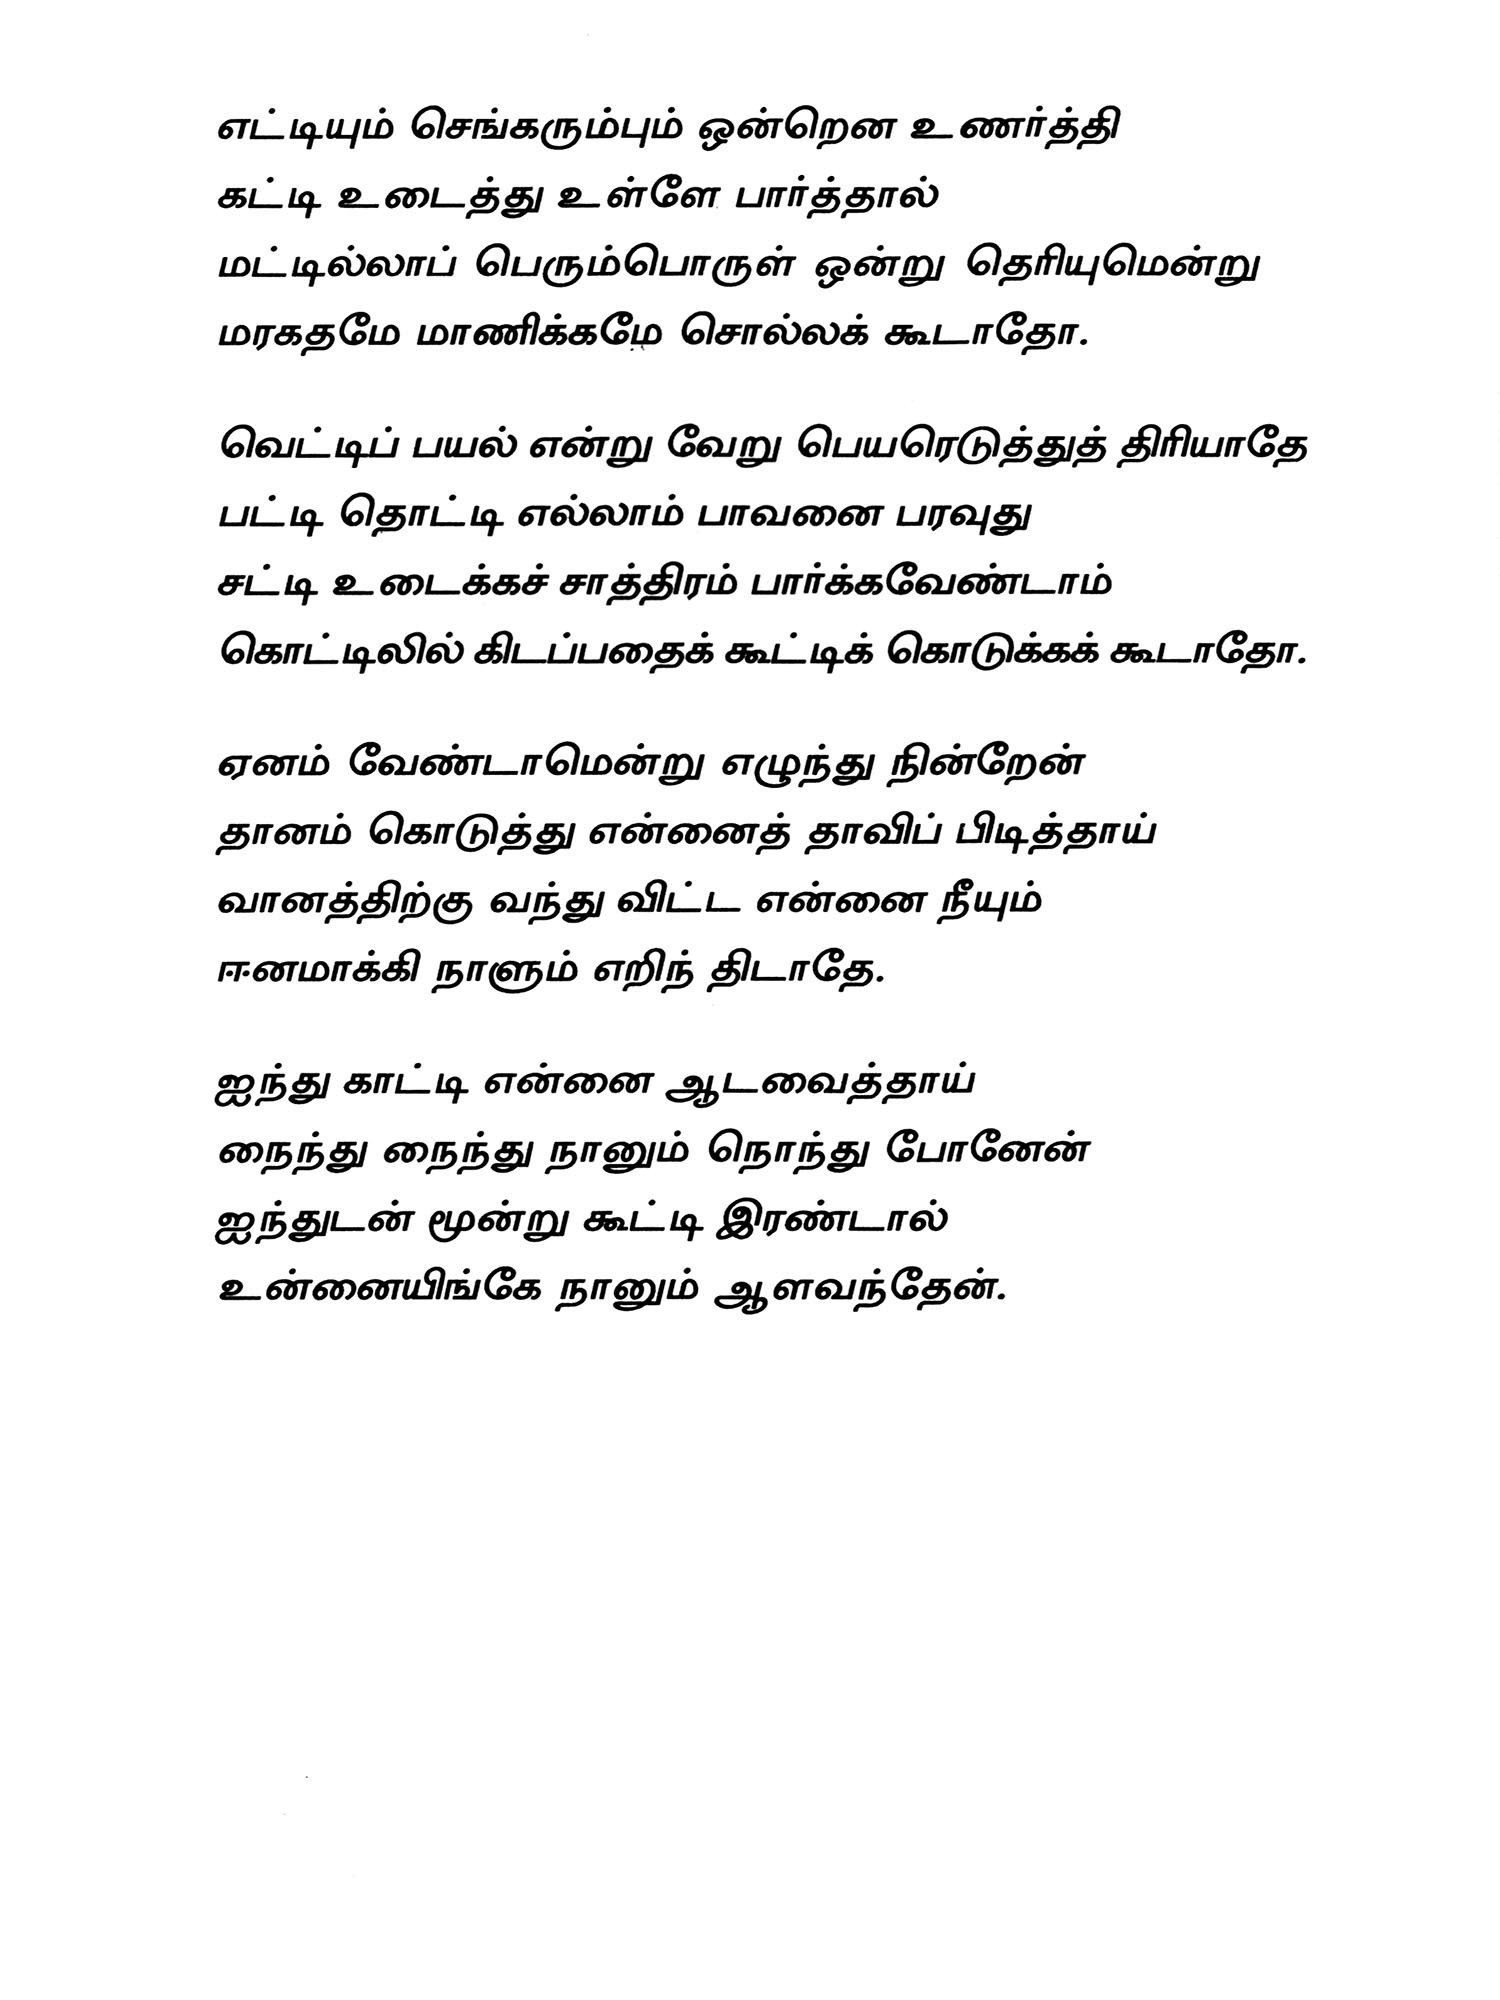 எட்டியும் செங்கரும்பும் ஒன்றென உணர்த்தி
கட்டி உடைத்து உள்ளே பார்த்தால்
மட்டில்லாப் பெரும்பொருள் ஒன்று தெரியுமென்று
மரகதமே மாணிக்கமே சொல்லக் கூடாதோ.
வெட்டிப் பயல் என்று வேறு பெயரெடுத்துத் திரியாதே
பட்டி தொட்டி எல்லாம் பாவனை பரவுது
சட்டி உடைக்கச் சாத்திரம் பார்க்கவேண்டாம்
கொட்டிலில் கிடப்பதைக் கூட்டிக் கொடுக்கக் கூடாதோ.
ஏனம் வேண்டாமென்று எழுந்து நின்றேன்
தானம் கொடுத்து என்னைத் தாவிப் பிடித்தாய்
வானத்திற்கு வந்து விட்ட என்னை நீயும்
ஈனமாக்கி நாளும் எறிந் திடாதே.
ஐந்து காட்டி என்னை ஆடவைத்தாய்
நைந்து நைந்து நானும் நொந்து போனேன்
ஐந்துடன் மூன்று கூட்டி இரண்டால்
உன்னையிங்கே நானும் ஆளவந்தேன்.